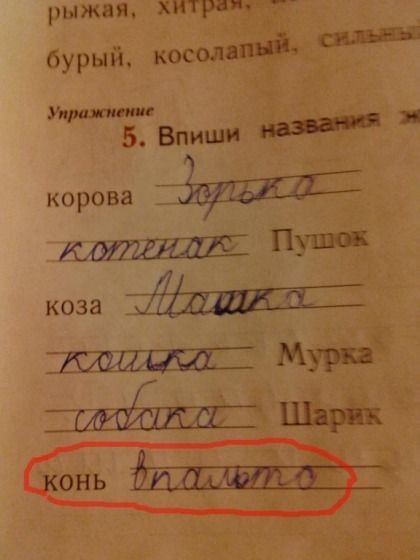 рыжая, хитрая,
бурый, косолапый, сильный
Упражнение
5. Впиши названия
корова Зорька
котенак Пушок
коза Машка
кошка Мурка
собака Шарик
конь впальто